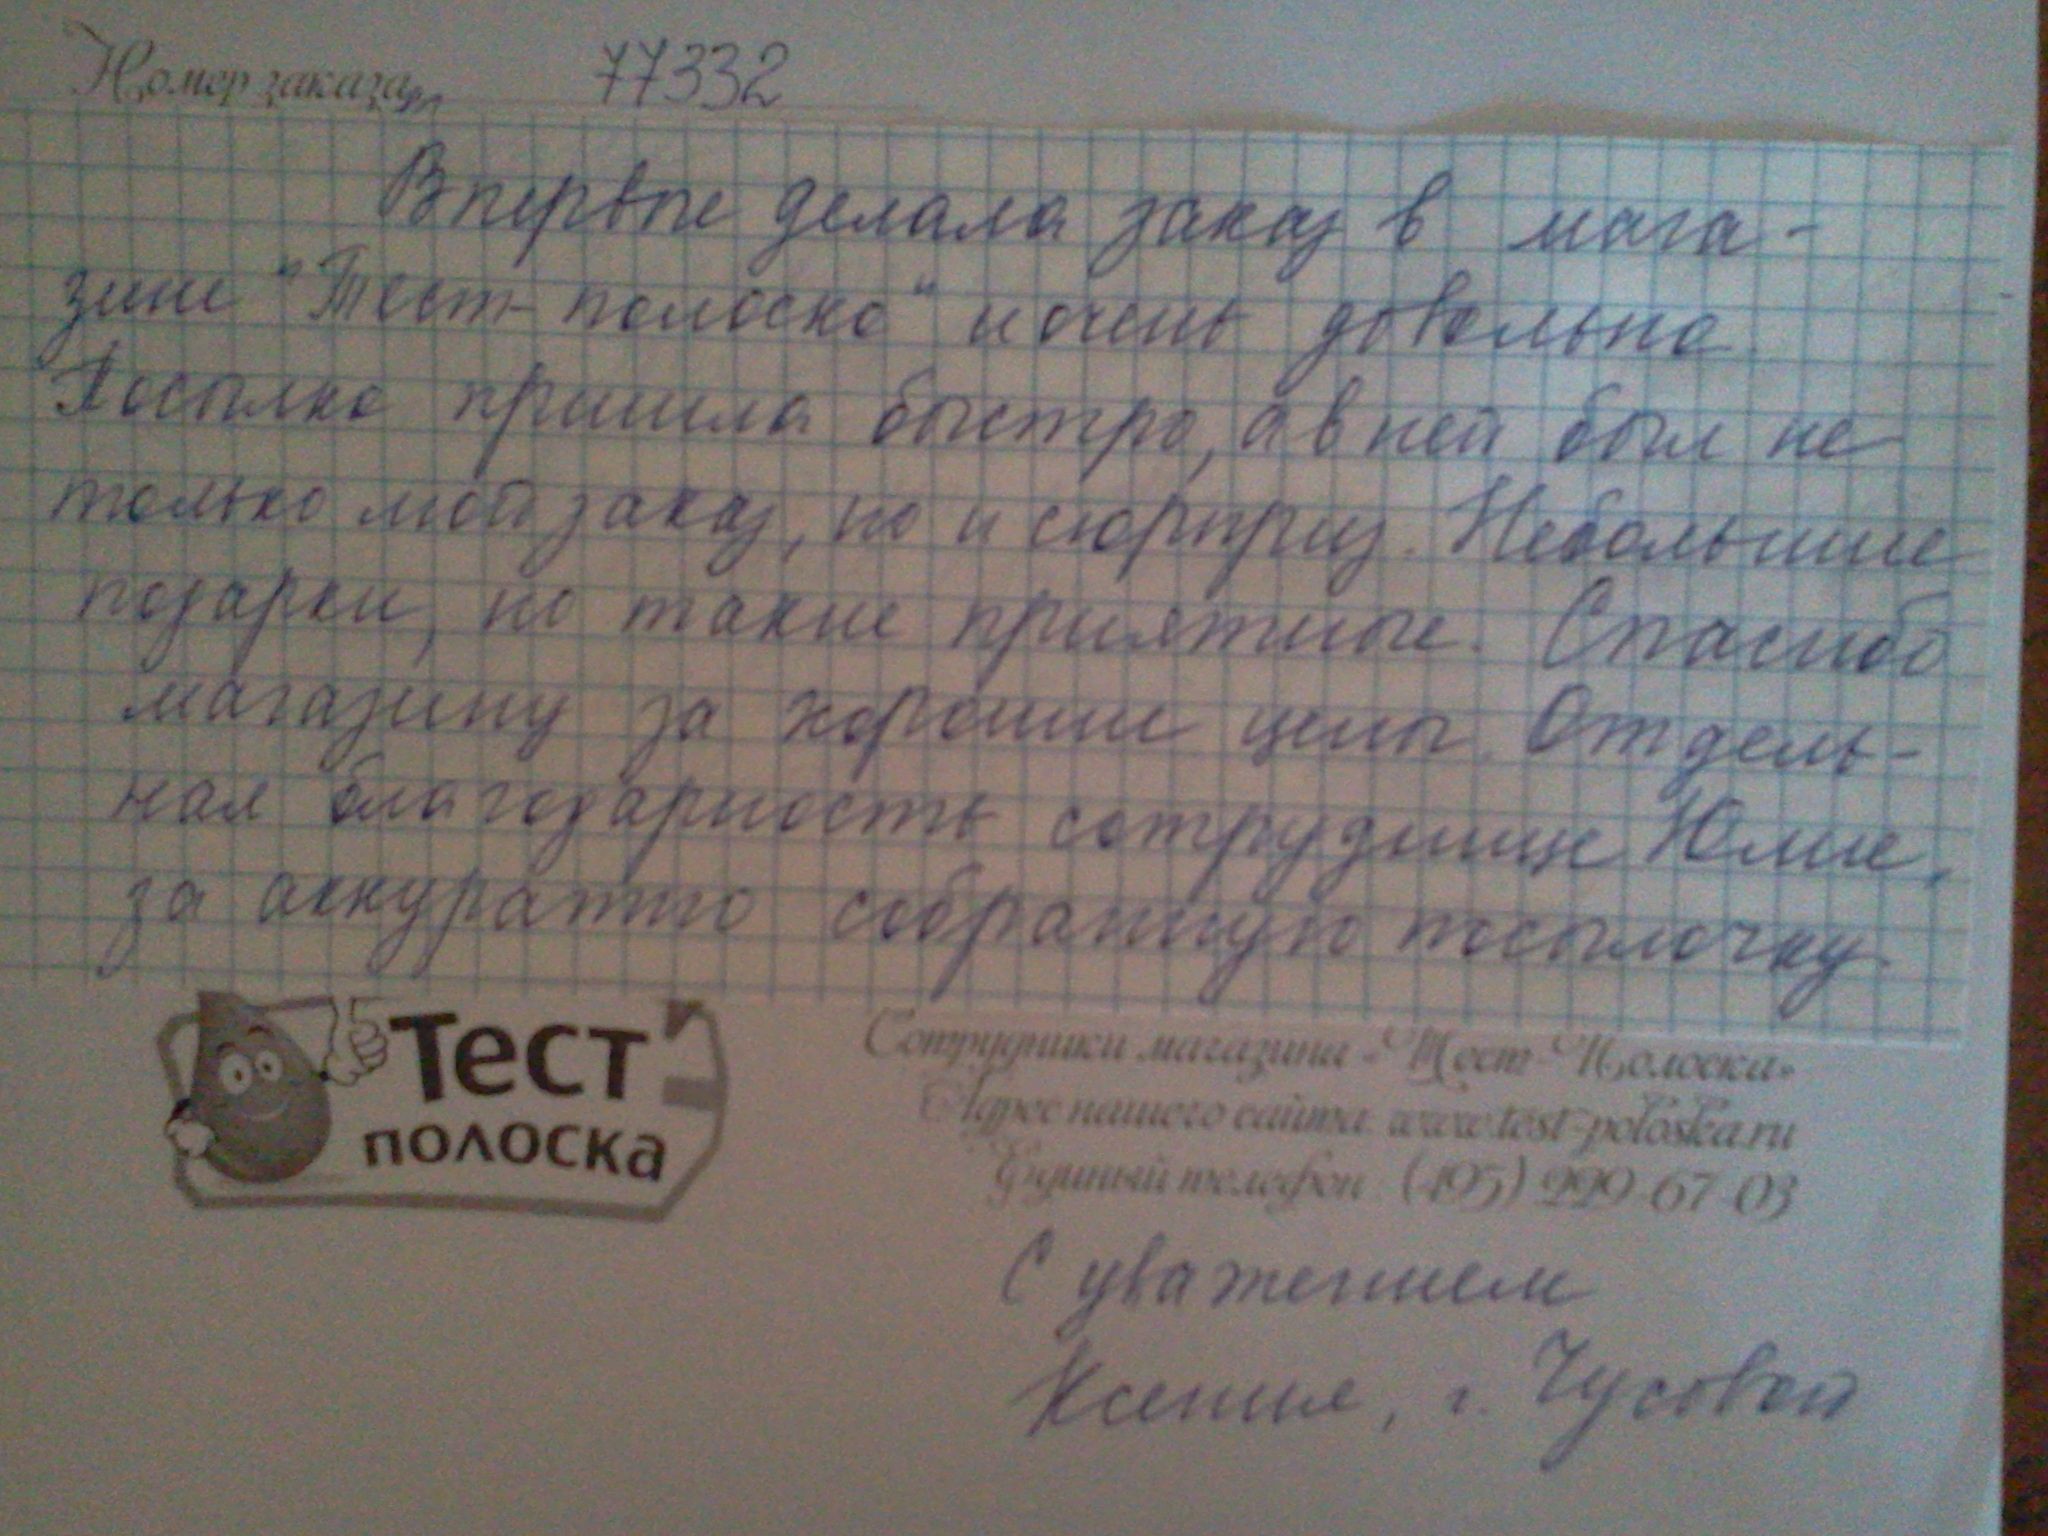 Номер заказа 77332
Впервые делала заказ в мага-
зине "Тест-полоска" и очень довольна.
Посылка пришла быстро, а в ней был не
только мой заказ, но и сюрприз. Небольшие
подарки, но такие приятные. Спасибо
магазину за хорошие цены. Отдель-
ная благодарность сотруднице Юлие,
за аккуратно собранную посылочку.
Тест
полоска
Сотрудники магазина «Тест-Полоска»
Адрес нашего сайта: www.test-poloska.ru
Единый телефон: (495) 999-67-03
С уважением
Ксения, г. Чусовой